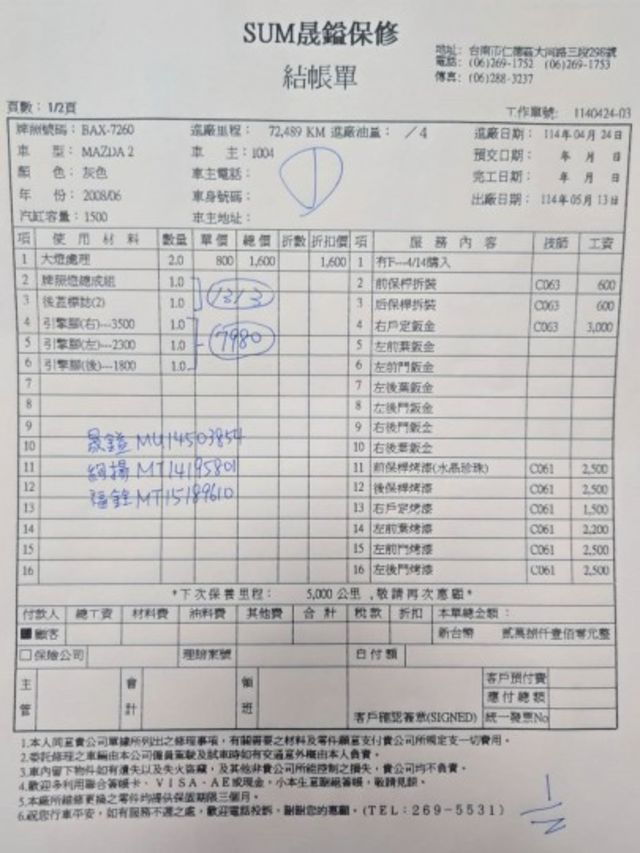 SUM晟鎰保修
地址: 台南市仁德區大同路三段298號
電話: (06)269-1752 (06)269-1753
傳真: (06)288-3237
結帳單
頁數: 1/2頁 工作單號: 1140424-03
牌照號碼: BAX-7260 進廠里程: 72,489 KM 進廠油量: /4 進廠日期: 114年04月24日
車 型: MAZDA 2 車 主: 1004 預交日期: 年 月 日
顏 色: 灰色 車主電話: 完工日期: 年 月 日
年 份: 2008/06 車身號碼: 出廠日期: 114年05月13日
汽缸容量: 1500 車主地址:
項 使用材料 數量 單價 總價 折數 折扣價 項 服務內容 技師 工資
1 大燈處理 2.0 800 1,600 1,600 1 有F---4/14購入
2 牌照燈總成組 1.0 2 前保桿拆裝 C063 600
3 後蓋標誌(2) 1.0 1313 3 后保桿拆裝 C063 600
4 引擎腳(右)---3500 1.0 4 右戶定鈑金 C063 3,000
5 引擎腳(左)---2300 1.0 7980 5 左前葉鈑金
6 引擎腳(後)---1800 1.0 6 左前門鈑金
7 7 左後葉鈑金
8 8 左後門鈑金
9 9 右後門鈑金
10 晟鎰 MU14503854 10 右後葉鈑金
11 MT14195801 11 前保桿烤漆(水晶珍珠) C061 2,500
12 MT15189610 12 後保桿烤漆 C061 2,500
13 13 右戶定烤漆 C061 1,500
14 14 左前葉烤漆 C061 2,200
15 15 左前門烤漆 C061 2,500
16 16 左後門烤漆 C061 2,500
*下次保養里程: 5,000 公里,敬請再次惠顧*
付款人 總工資 材料費 油料費 其他費 合計 稅款 折扣 本單總金額:
■顧客 新台幣 貳萬捌仟壹佰零元整
□保險公司 理賠案號 自付額
主管 會計 領班 客戶確認簽章(SIGNED) 客戶預付費
應付總額
統一發票No
1.本人同意貴公司單據所列出之修理事項,有關需要之材料及零件願意支付貴公司所規定支一切費用。
2.委託修理之車輛由本公司僱員駕駛及試車時如有交通意外概由本人負責。
3.車內留下物件如有遺失以及失火盜竊,及其他非貴公司所能控制之損失,貴公司均不負責。
4.歡迎多利用聯合簽帳卡、VISA、AE或現金,小本生意謝絕簽帳,敬請見諒。
5.本廠所維修更換之零件均提供保固期限三個月。
6.祝您行車平安,如有服務不週之處,歡迎電話投訴,謝謝您的惠顧。(TEL:269-5531)